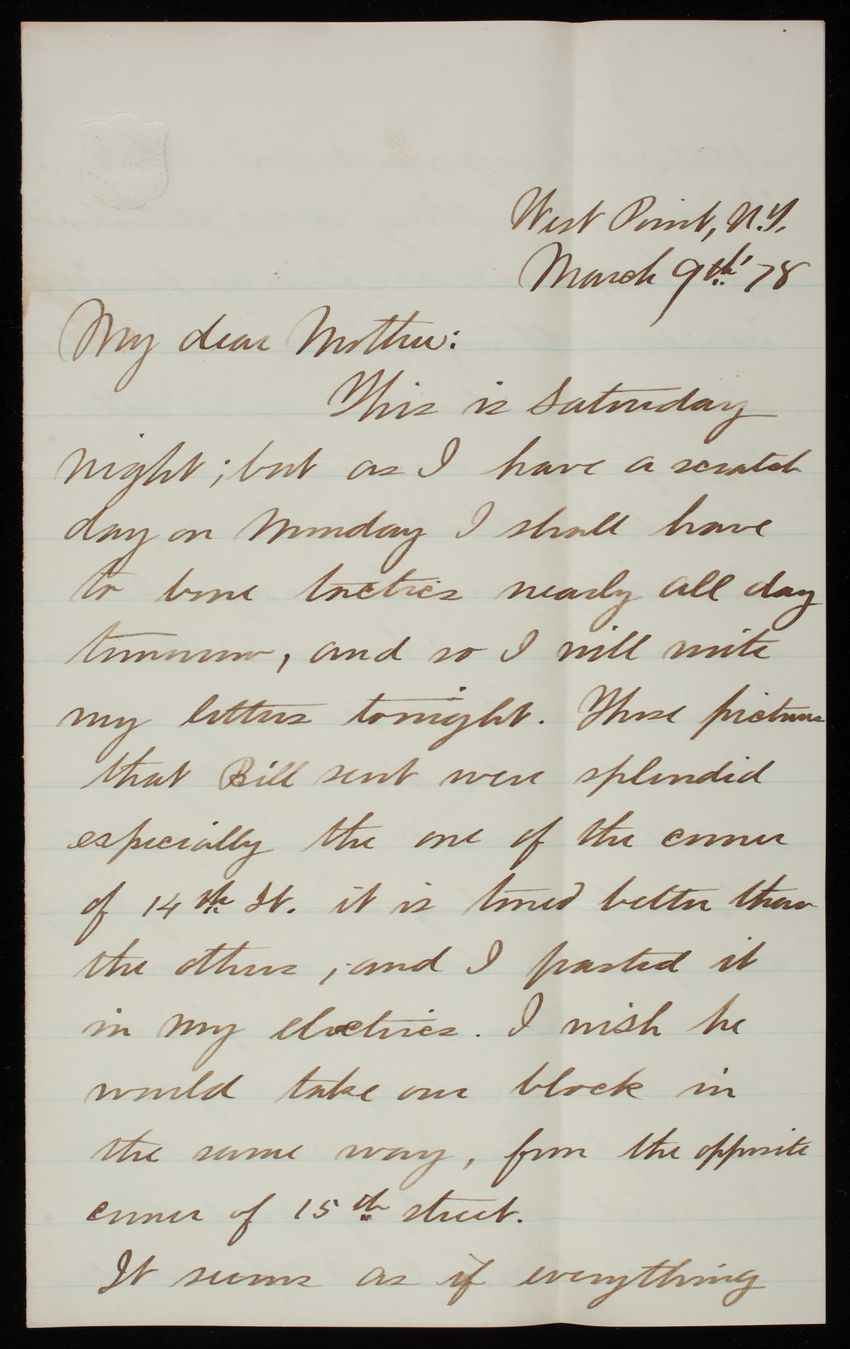 West Point, N.Y.
March 9th '78
My dear Mother:
This is Saturday
night; but as I have a scratch
day on Monday I shall have
to bone tactics nearly all day
tomorrow, and so I will write
my letters tonight. Those pictures
that Bill sent were splendid
especially the one of the corner
of 14th St. it is toned better than
the others, and I pasted it
in my electrics. I wish he
would take our block in
the same way, from the opposite
corner of 15th street.
It seems as if everything